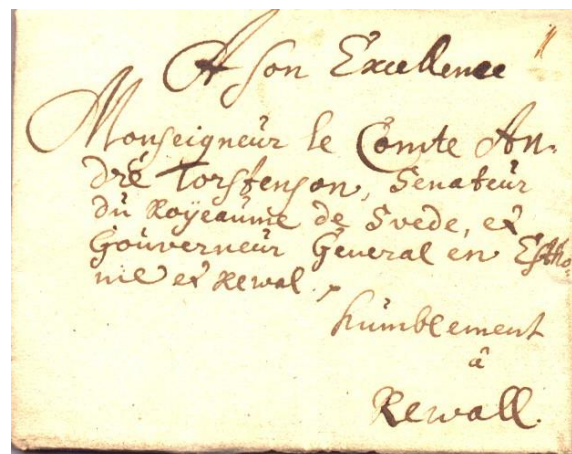 A son Excellence
Monseigneur le Comte An-
dré Torstenson, Senateur
du Royeaume de Svede, et
Gouverneur General en Estho-
nie et Rewal.
humblement
â
Rewall.